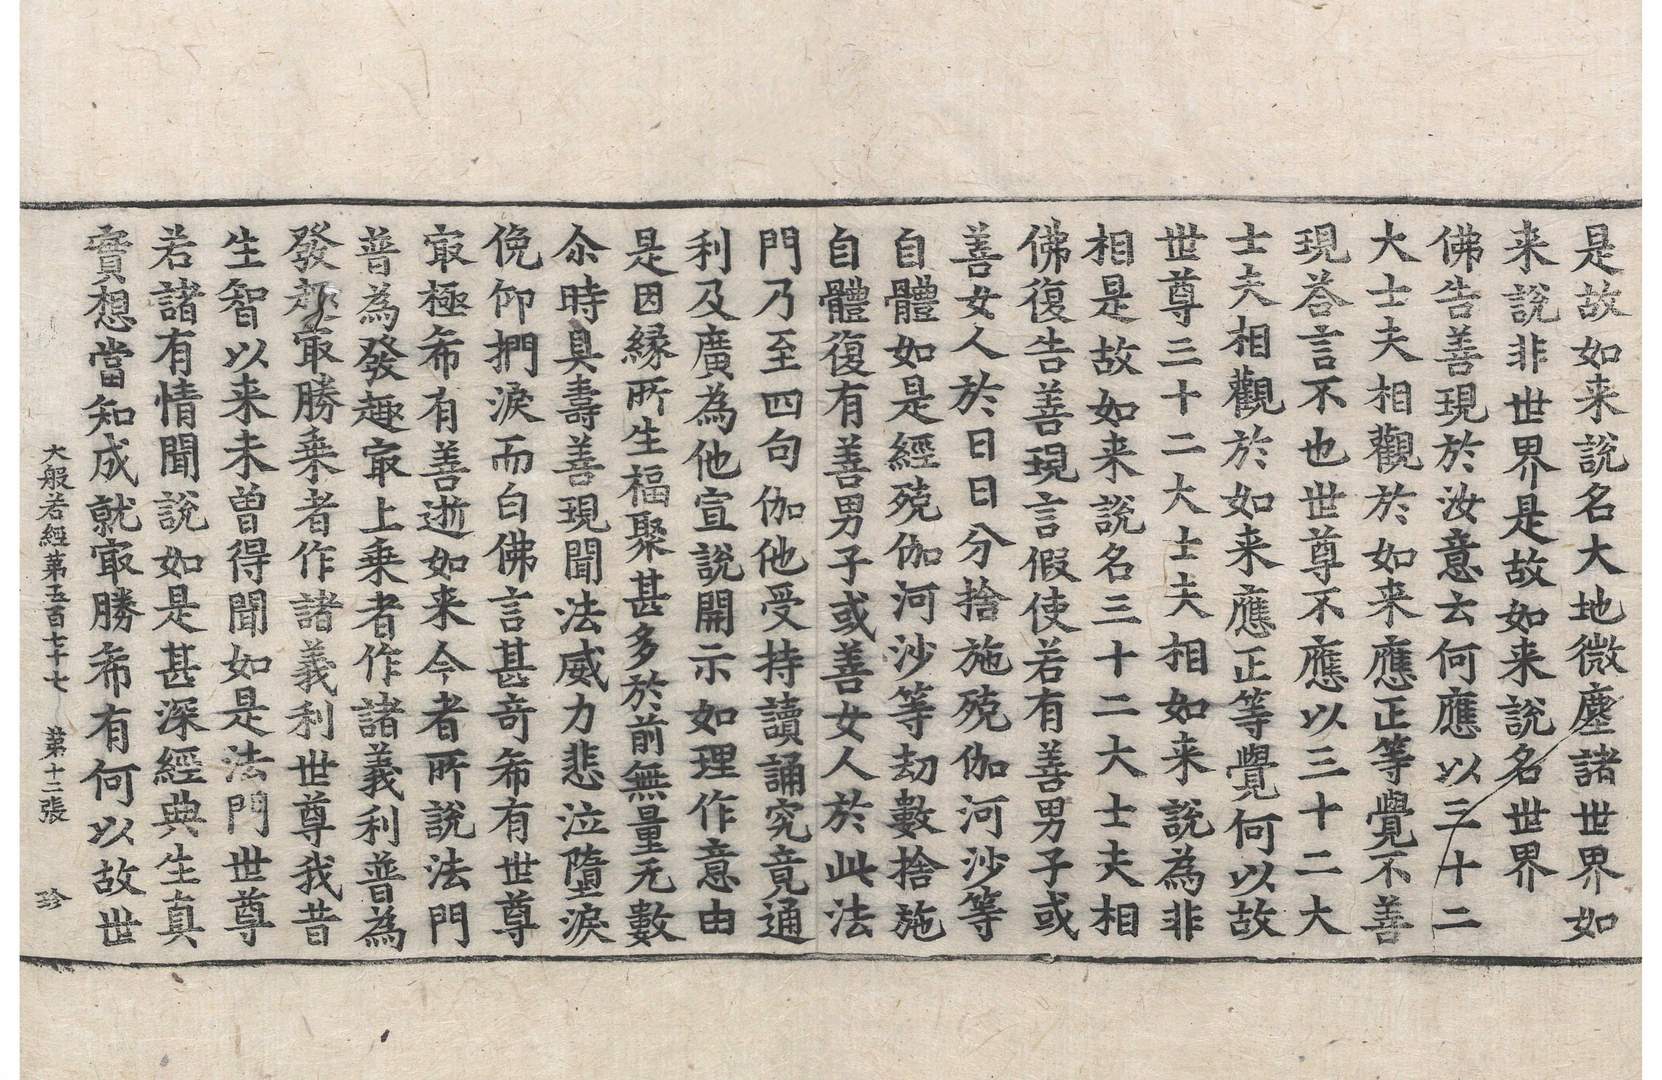 是故如来說名大地微塵諸世界如
来說非世界是故如来說名世界
佛告善現於汝意云何應以三十二
大士夫相觀於如来應正等覺不善
現荅言不也世尊不應以三十二大
士夫相觀於如来應正等覺何以故
世尊三十二大士夫相如来說為非
相是故如来說名三十二大士夫相
佛復告善現言假使若有善男子或
善女人於日日分捨施殑伽河沙等
自體如是經殑伽河沙等劫數捨施
自體復有善男子或善女人於此法
門乃至四句伽他受持讀誦究竟通
利及廣為他宣說開示如理作意由
是因縁所生福聚甚多於前無量无數
尒時具壽善現聞法威力悲泣墮淚
俛仰捫淚而白佛言甚竒希有世尊
㝡極希有善逝如来今者所說法門
普為發趣㝡上乗者作諸義利普為
發趣㝡勝乗者作諸義利世尊我昔
生智以来未曽得聞如是法門世尊
若諸有情聞說如是甚深經典生真
實想當知成就㝡勝希有何以故世
大般若經第五百七十七　第十二張　珍